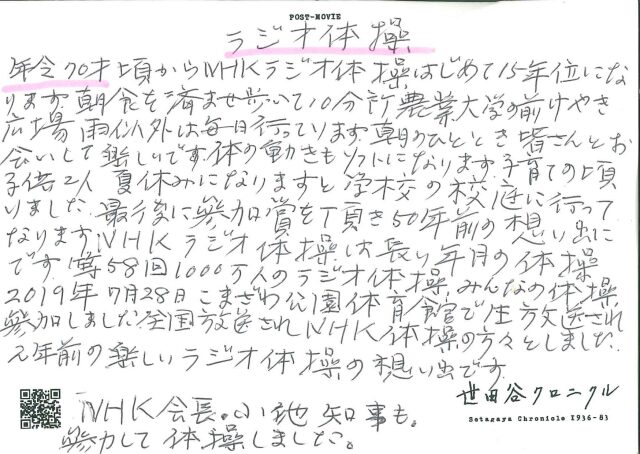 POST-MOVIE
ラジオ体操
年令70才頃からNHKラジオ体操はじめて15年位にな
ります.朝食を済ませ歩いて10分所農業大学の前けやき
広場雨以外は毎日行っています.朝のひととき皆さんとお
会いして楽しいです.体の動きもソフトになります.子育ての頃
子供2人 夏休みになりますと学校の校庭に行って
いました.最後に参加賞を頂き50年前の想い出に
なります.NHKラジオ体操は長い年月の体操
です.第58回1000万人のラジオ体操.みんなの体操
2019年7月28日こまざわ公園体育館で生放送され
参加しました.全国放送されNHK体操の方々としました.
元年前の楽しいラジオ体操の想い出です
世田谷クロニクル
Setagaya Chronicle 1936-83
NHK会長.小池知事も.
参加して体操しました。